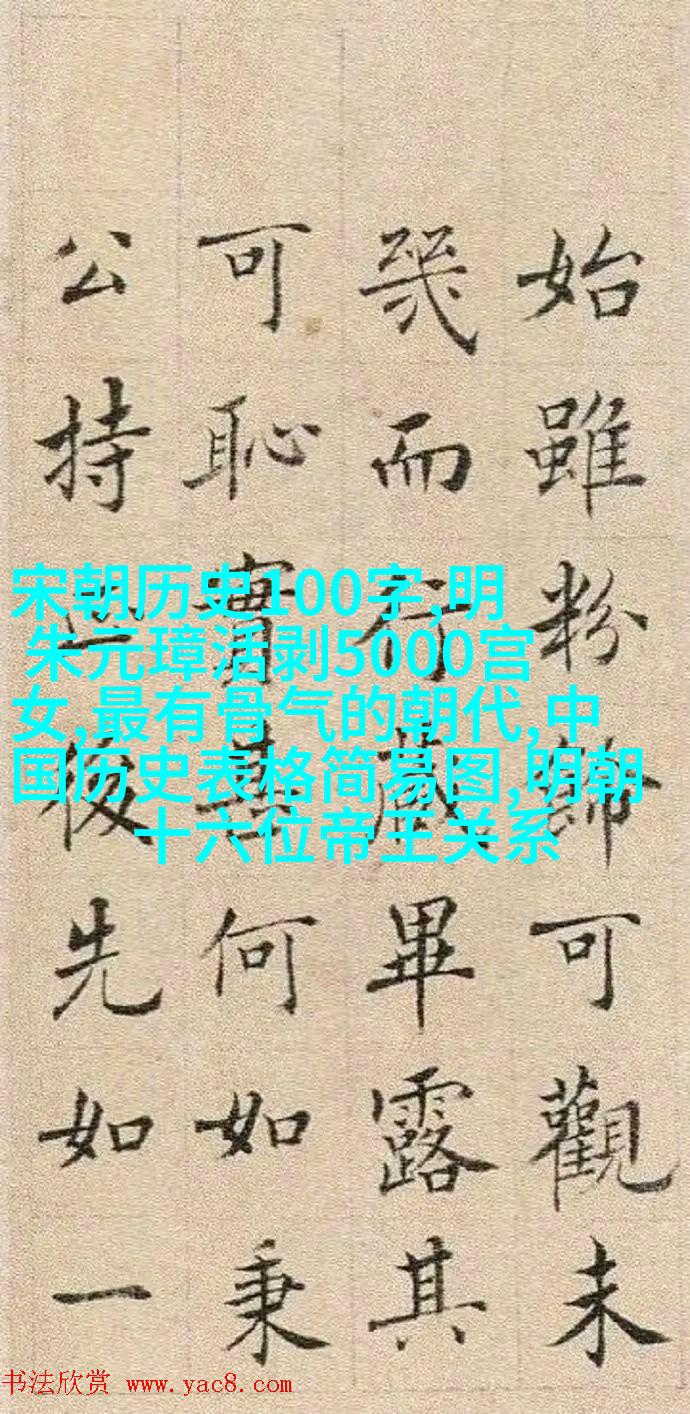 始雖粉飾可觀未
幾而行藏畢露其
可恥實甚何如秉
公持正後先如一
宋朝历史100字,明
朱元璋活剥5000宫
女,最有骨气的朝代,中
国历史表格简易图,明朝
十六位帝王关系
书法欣赏 www.yac8.com